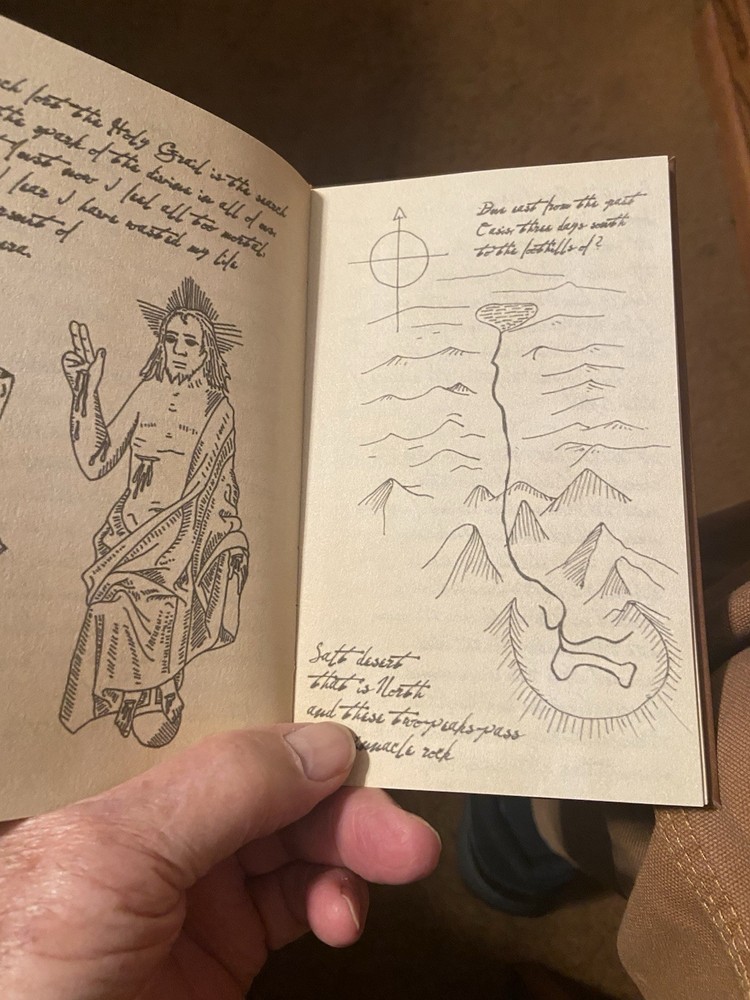 the Holy Grail is the search
the spark of the divine in all of us.
just now I feel all too mortal.
I fear I have wasted my life
of
Due east from the past
Casis, three days south
to the foothills of?
Salt desert
that is North
and these two-peaks-pass
rock